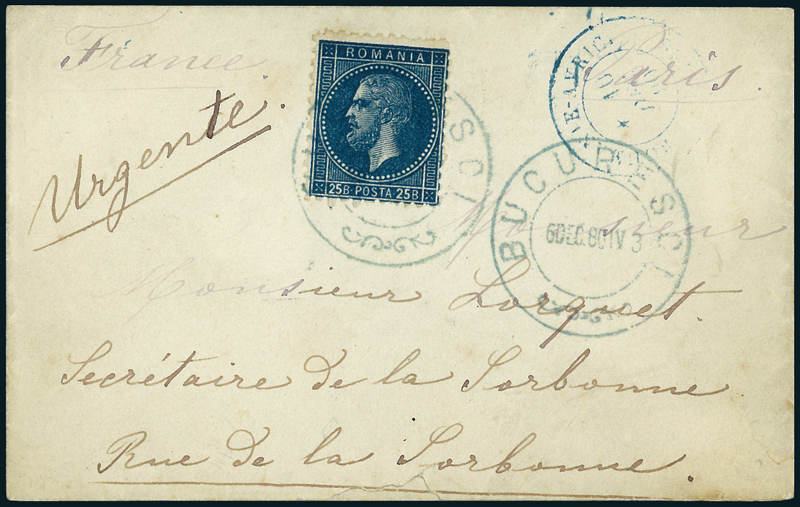 France. Paris.
Urgente.
ROMANIA
25B-POSTA 25B
BUCURESCI
6DEC.80IV 3
Monsieur
Monsieur Lorquet.
Secrétaire de la Sorbonne
Rue de la Sorbonne.